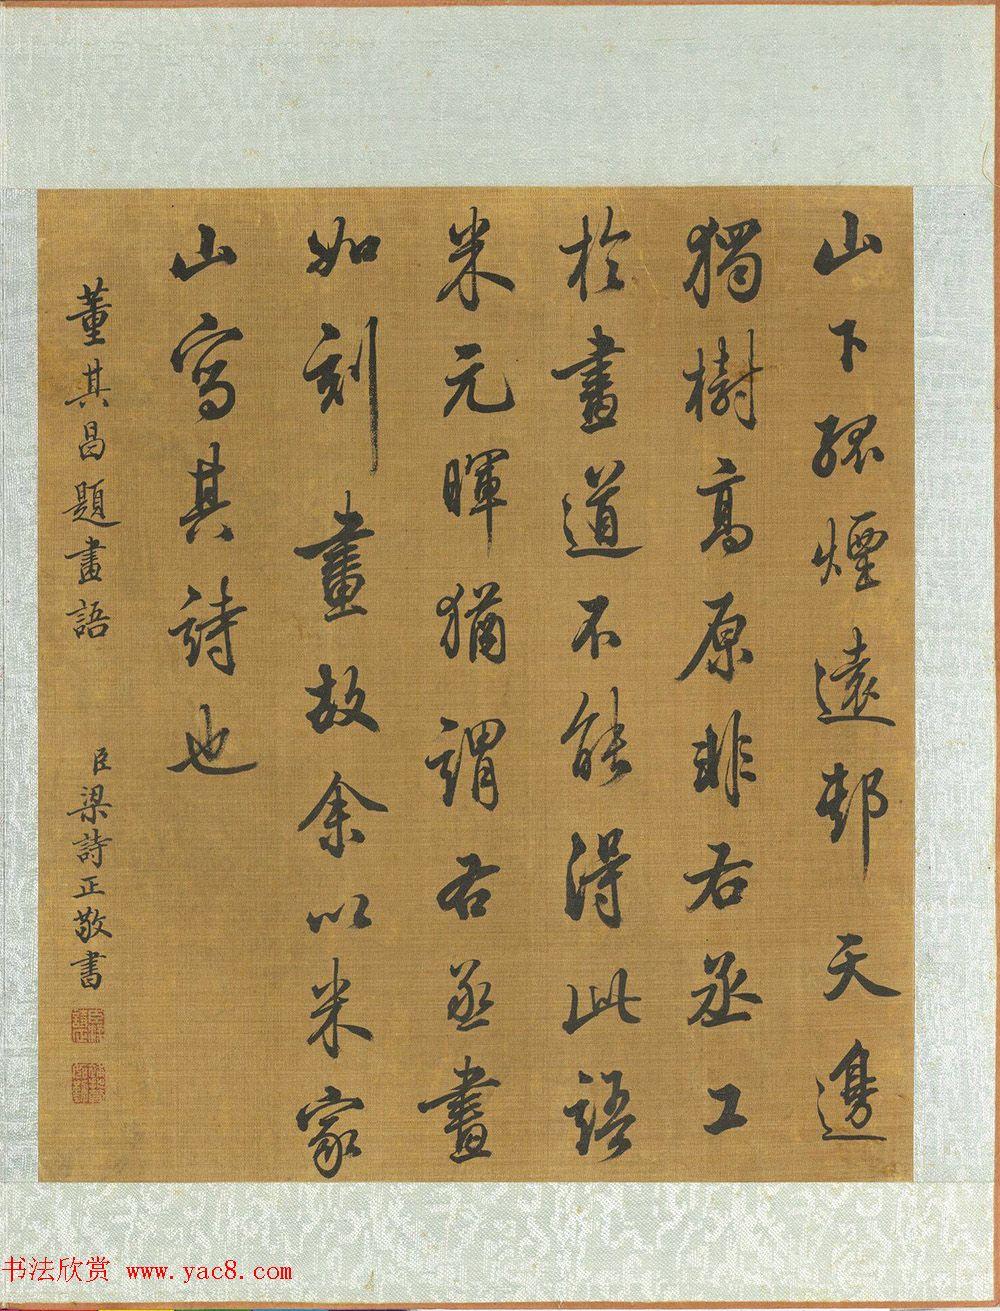 山下孤煙遠邨天邊
獨樹高原非右丞工
於畫道不能得此語
米元暉猶謂右丞畫
如刻畫故余以米家
山寫其詩也
董其昌題畫語 臣梁詩正敬書
书法欣赏 www.yac8.com